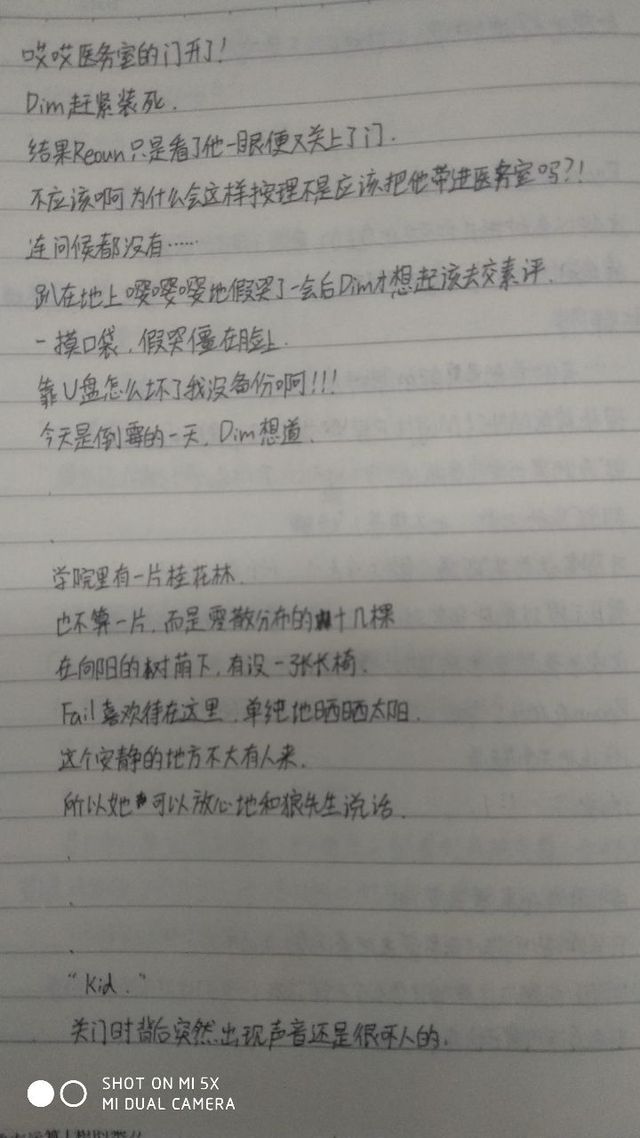 哎哎医务室的门开了！
Dim赶紧装死.
结果Reoun只是看了他一眼便又关上了门.
不应该啊为什么会这样按理不是应该把他带进医务室吗？！
连问候都没有……
趴在地上嘤嘤嘤地假哭了一会后Dim才想起该去交素评.
一摸口袋，假哭僵在脸上.
靠U盘怎么坏了我没备份啊！！！
今天是倒霉的一天，Dim想道.
学院里有一片桂花林.
也不算一片，而是零散分布的十几棵
在向阳的树荫下，有设一张长椅.
Fail喜欢待在这里，单纯地晒晒太阳.
这个安静的地方不大有人来.
所以她可以放心地和狼先生说话.
“Kid.”
关门时背后突然出现声音还是很吓人的.
SHOT ON MI 5X
MI DUAL CAMERA